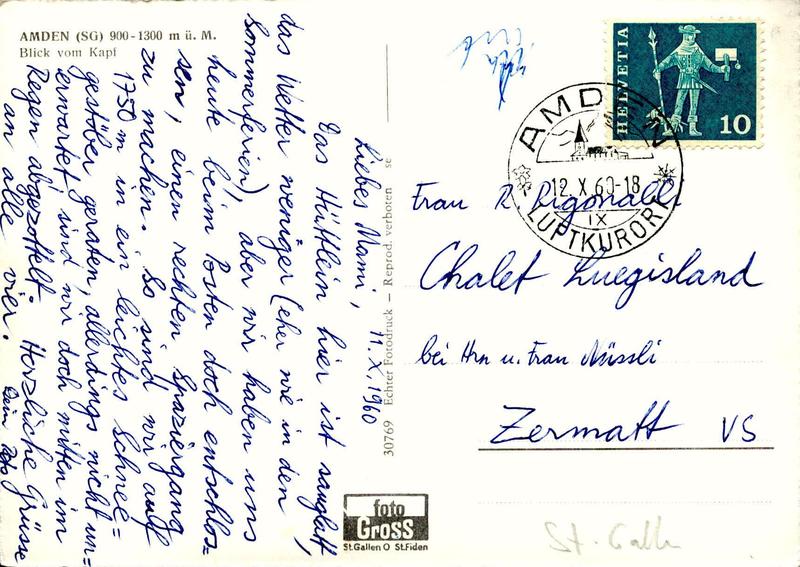 AMDEN (SG) 900-1300 m ü. M.
Blick vom Kapf
11.X.1960
Liebes Mami,
Das Hüttlein hier ist sauglatt,
das Wetter weniger (eher wie in den
Sommerferien), aber wir haben uns
heute beim Posten doch entschlos=
sen, einen rechten Spaziergang
zu machen. So sind wir auf
1750 m in ein leichtes Schnee=
gestöber geraten, allerdings nicht un=
erwartet, sind wir doch mitten im
Regen abgezottelt. Herzliche Grüsse
an alle vier.
Dein
30769 Echter Fotodruck — Reprod. verboten se
HELVETIA
10
AMDEN
12.X.60-18
IX
LUFTKURORT
Frau R. Rigonalli
Chalet Luegisland
bei Hrn u. Frau Nüssli
Zermatt VS
foto
Gross
St.Gallen O St.Fiden
St. Galle